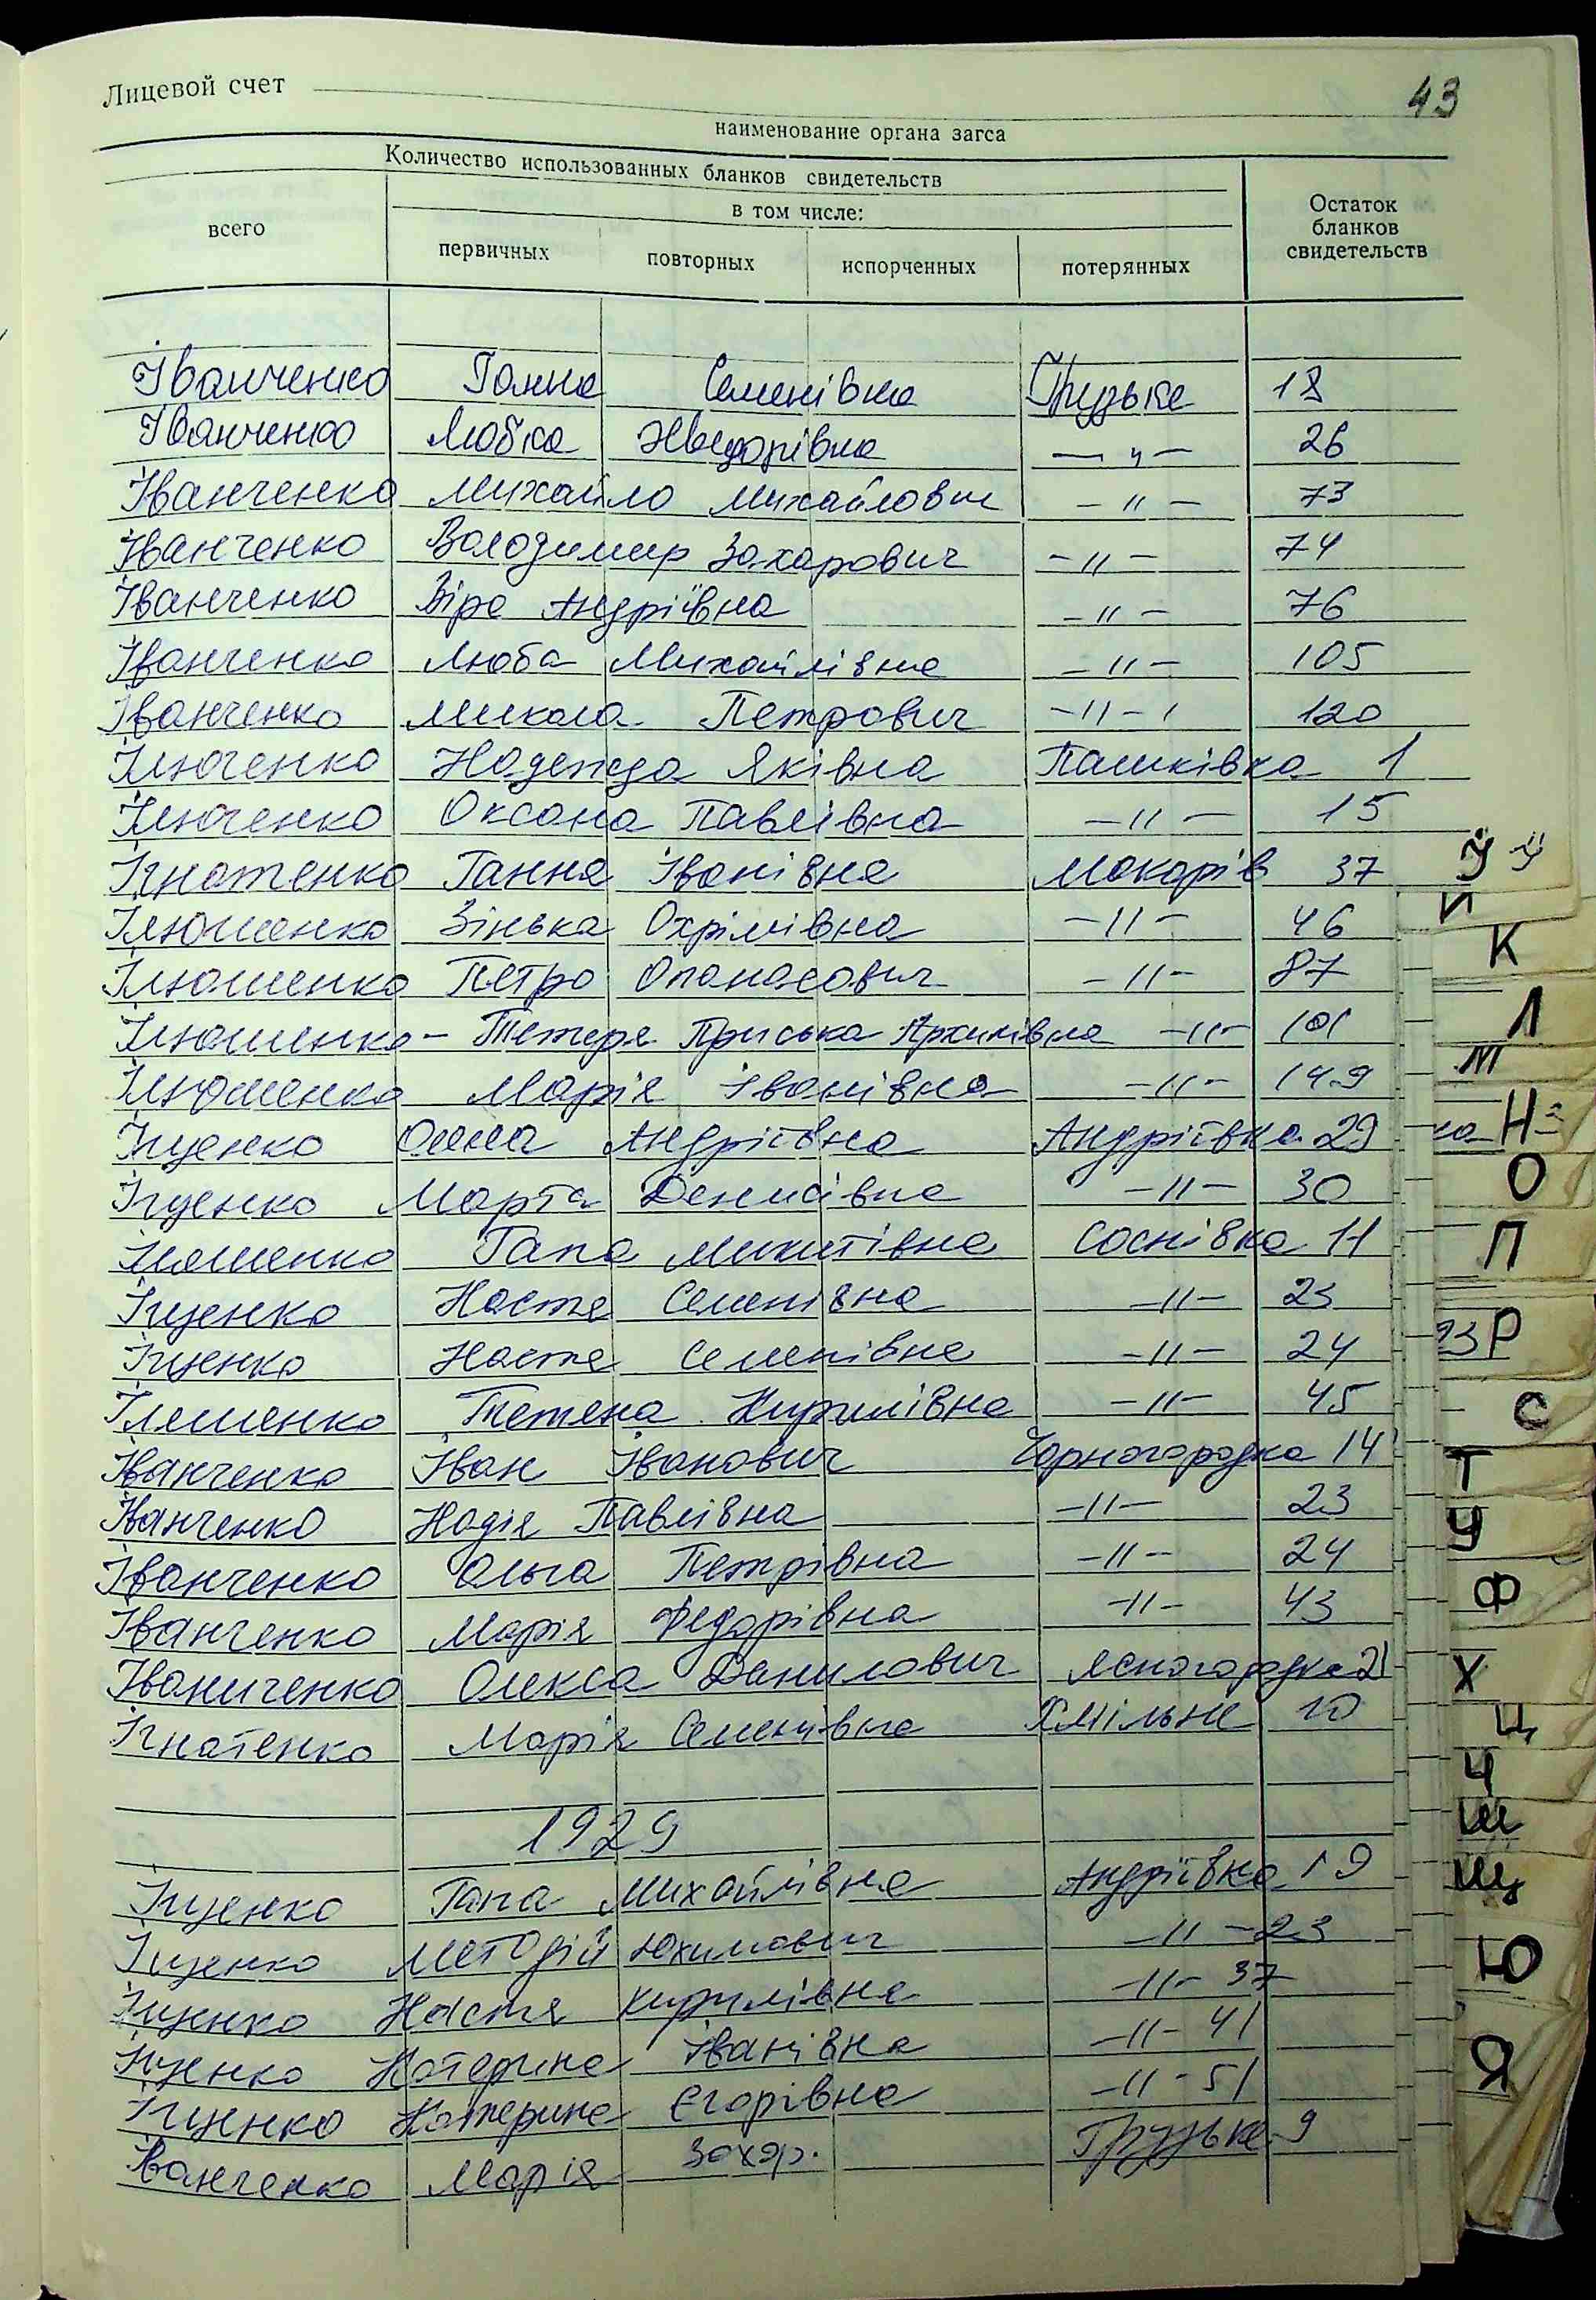 Лицевой счет
43
наименование органа загса
Количество использованных бланков свидетельств
всего
в том числе:
первичных повторных испорченных потерянных
Остаток бланков свидетельств
Іванченко Ганна Семенівна Грузьке 18
Іванченко Любка Нведорівна — " — 26
Іванченко Михайло Михайлович — " — 73
Іванченко Володимир Захарович — " — 74
Іванченко Віра Андріївна — " — 76
Іванченко Люба Михайлівна — " — 105
Іванченко Микола Петрович — " — 120
Ілюченко Надежда Яківна Пашківка 1
Ілюченко Оксана Павлівна — " — 15
Ігнатенко Ганна Іванівна Макарів 37
Ілюшенко Зінька Охрімівна — " — 46
Ілюшенко Петро Опанасович — " — 87
Ілюшенко - Тетеря Приська Архипівна — " — 101
Ілюшенко Марія Іванівна — " — 149
Іщенко Олена Андріївна Андріївка 29
Іщенко Марта Денисівна — " — 30
Іляшенко Гапа Микитівна Соснівка 11
Іщенко Настя Семенівна — " — 23
Іщенко Настя Семенівна — " — 24
Іляшенко Тетена Кирилівна — " — 45
Іванченко Іван Іванович Чорногородка 14
Іванченко Надія Павлівна — " — 23
Іванченко Ольга Петрівна — " — 24
Іванченко Марія Федорівна — " — 43
Іваниченко Олекса Данилович Ясногородка 21
Ігнатенко Марія Семенівна Хмільне 10
1929
Іщенко Гапа Михайлівна Андріївка 19
Іщенко Методій Юхимович — " — 23
Іщенко Настя Кирилівна — " — 37
Іщенко Катерина Іванівна — " — 41
Іщенко Катерина Єгорівна — " — 51
Іванченко Марія Захар. Грузьке 9
Й
К
Л
М
Н
О
П
Р
С
Т
У
Ф
Х
Ц
Ч
Ш
Щ
Ю
Я